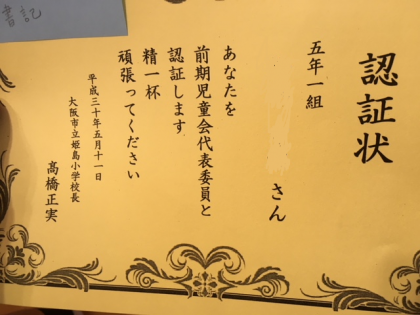 認証状
五年一組
さん
あなたを
前期児童会代表委員と
認証します
精一杯
頑張ってください
平成三十年五月十一日
大阪市立姫島小学校長
高橋正実
書記